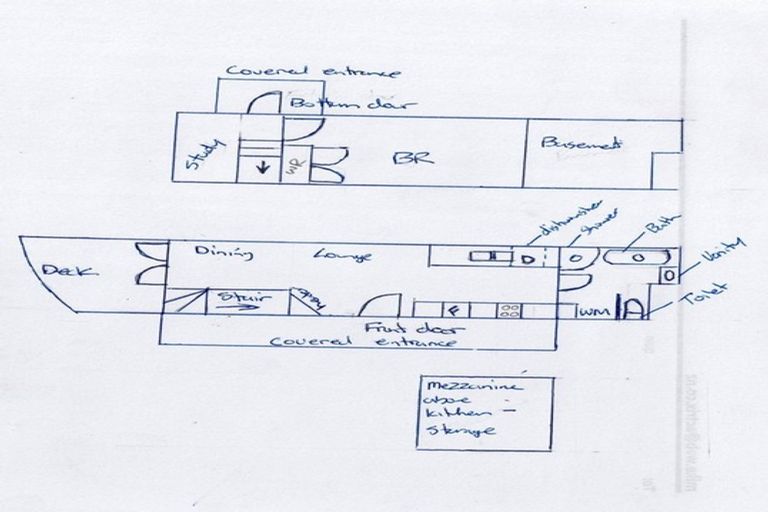 Covered entrance
Bottom door
Study
WR
BR
Basement
dishwasher
Shower
Bath
Vanity
Toilet
Deck
Dining
Lounge
D
Stair
F
WM
Front door
Covered entrance
mezzanine
above
kitchen -
storage